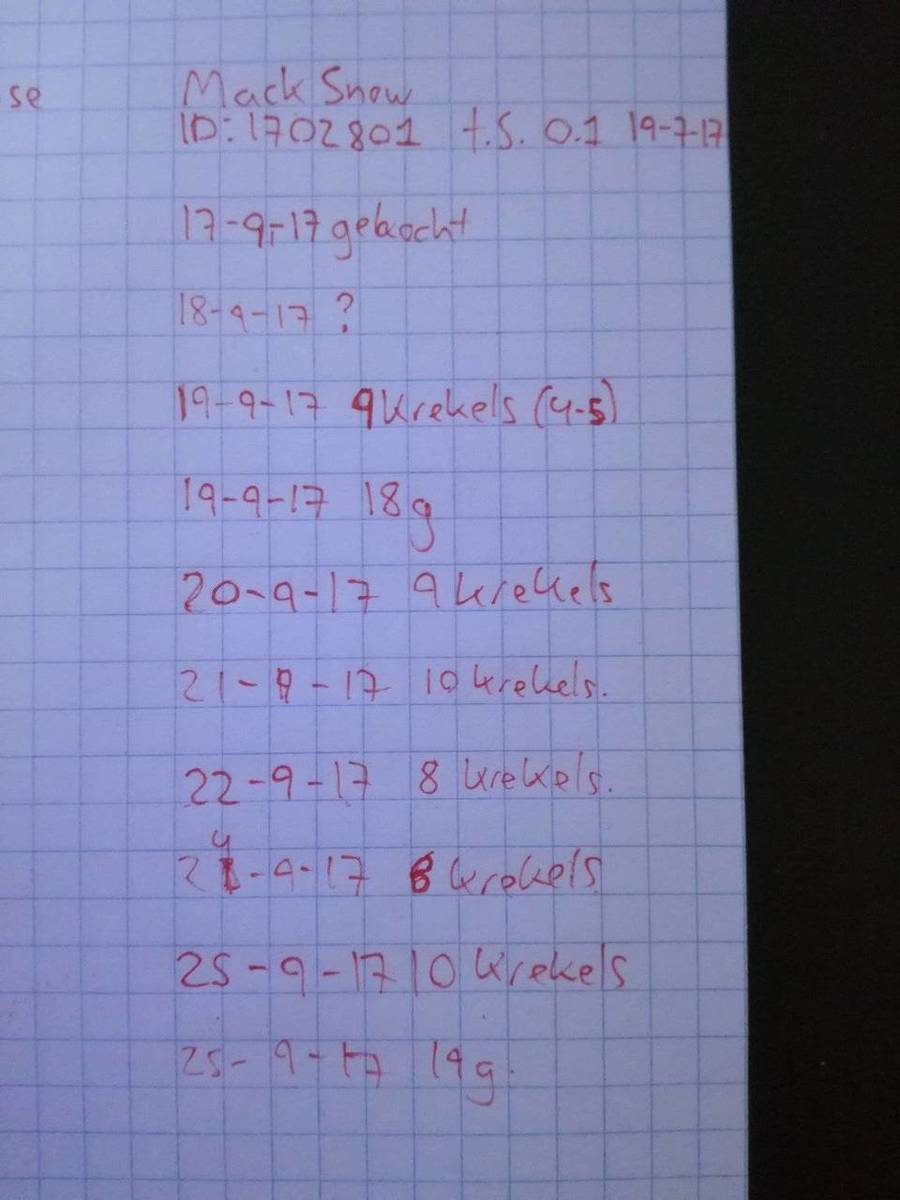 se
Mack Snow
ID: 1702801 t.S. 0.1 19-7-17
17-9-17 gekocht
18-9-17 ?
19-9-17 9 krekels (4-5)
19-9-17 18g
20-9-17 9 krekels
21-9-17 10 krekels.
22-9-17 8 krekels.
24-9-17 krekels
25-9-17 10 krekels
25-9-17 19g.